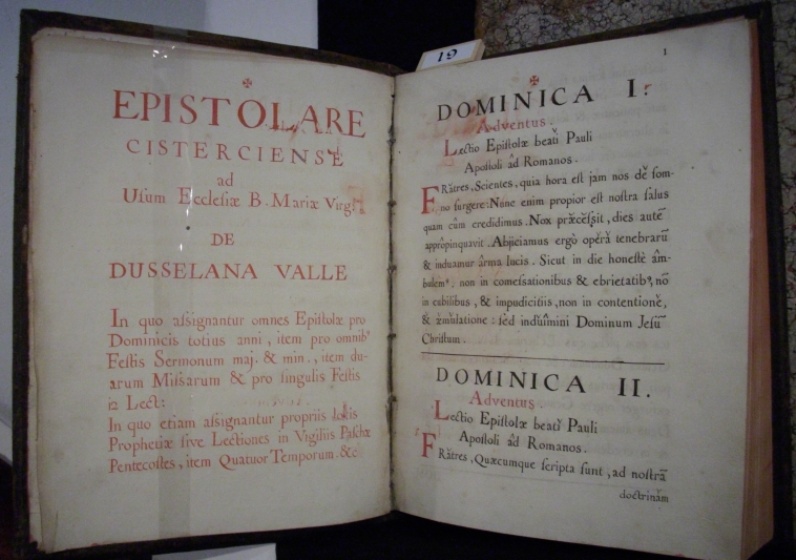 19
✠
EPISTOLARE
CISTERCIENSE
ad
Uſum Eccleſiæ B. Mariæ Virg:
DE
DUSSELANA VALLE
In quo aſsignantur omnes Epiſtolæ pro
Dominicis totius anni, item pro omnibꝰ
Feſtis Sermonum maj. & min., item du-
arum Miſsarum & pro singulis Feſtis
12 Lect:
In quo etiam aſsignantur propriis locis
Prophetiæ ſive Lectiones in Vigiliis Paſchæ
Pentecoſtes, item Quatuor Temporum. &c
1
✠
DOMINICA I.
Adventus.
Lectio Epiſtolæ beati Pauli
Apoſtoli ad Romanos.
FRátres, Scientes, quia hora eſt jam nos dé ſom-
no ſurgere: Nunc enim propior eſt noſtra ſalus
quam cûm credidimus. Nox præceſsit, dies autē
appropinquavit. Abjiciamus ergò opéra tenebrarū
& induamur ârma lucis. Sicut in die honeſtè âm-
bulemꝰ, non in comeſsationibus & ebrietatibꝰ, nō
in cubilibus, & impudicitiis, non in contentione,
& æmulatione: ſed induímini Dominum Jeſū
Chriſtum.
DOMINICA II.
Adventus.
Lectio Epiſtolæ beati Pauli
Apoſtoli âd Romanos.
FRátres, Quæcumque ſcripta ſunt, ad noſtrā
doctrinam